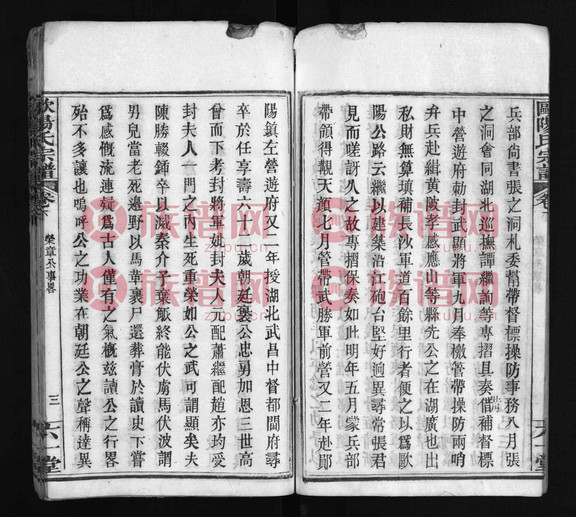 歐陽氏宗譜
卷
兵部尚書張之洞札委幫帶督標操防事務八月張
之洞會同湖北巡撫譚繼洵等專摺具奏借補督標
中營遊府勅封武顯將軍九月奉檄管帶操防兩哨
弁兵赴緝黃陂孝感應山等縣先公之在湖廣也出
私財無算填補長沙軍道百餘里行者便之以爲歐
陽公路云繼以建築沿江砲台堅好逈異尋常張君
見而嗟訝久之故專摺保奏如此明年五月蒙兵部
帶領得覲天顏七月管帶武勝軍前營又二年赴鄖
六一堂
陽鎮左營遊府又二年授湖北武昌中督都閫府尋
卒於任享壽六十三歲朝廷褒公忠勇加恩三世高
曾而下考封將軍妣封夫人元配蕭繼配趙亦均受
封夫人一門之內生死重榮如公之武可謂顯矣夫
陳滕輟鋛卒以滅秦介子棄觚終能伏虜馬伏波謂
男兒當老死邊野以馬革裹尸還葬膏於讀史下嘗
爲感慨流連疑爲古人僅有之氣概茲讀公之行畧
殆不多讓也嗚呼公之功業在朝廷公之聲稱達異
歐陽氏宗譜
卷
榮章公事畧
三
六一堂
族谱网
族谱网
族谱网
族谱网